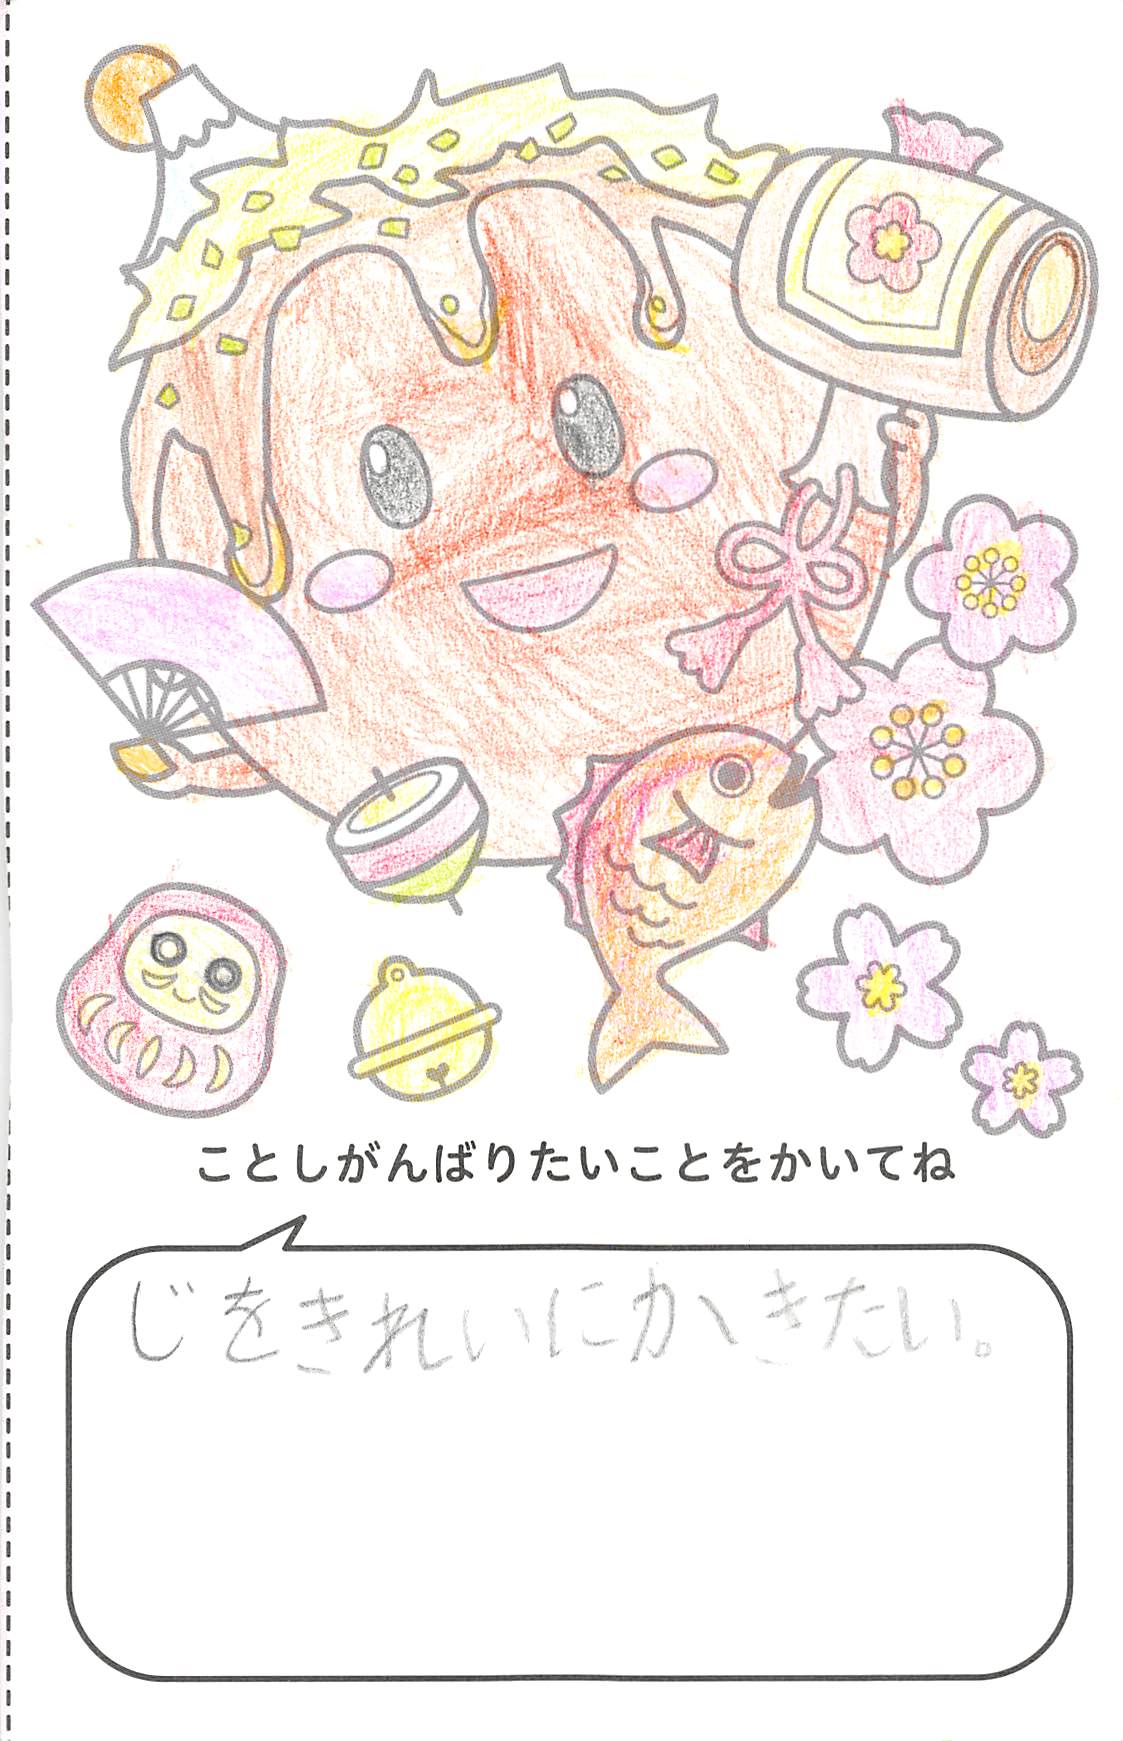 ことしがんばりたいことをかいてね
じをきれいにかきたい。